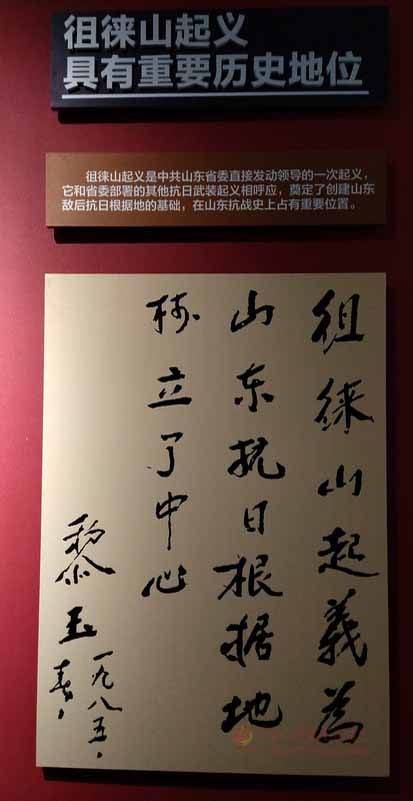 徂徕山起义
具有重要历史地位
徂徕山起义是中共山东省委直接发动领导的一次起义，
它和省委部署的其他抗日武装起义相呼应，奠定了创建山东
敌后抗日根据地的基础，在山东抗战史上占有重要位置。
徂徕山起義為
山东抗日根据地
树立了中心
黎玉
一九八五，
春，